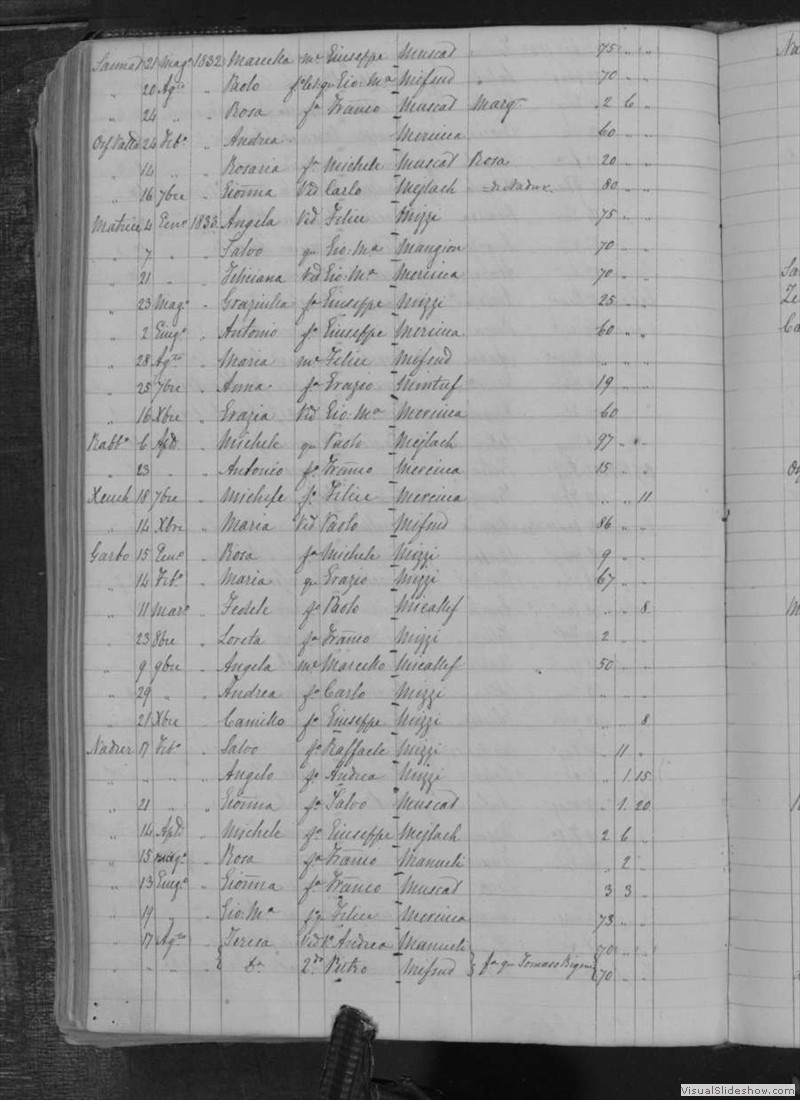 Sannat 21 Mag.o 1832 Marietta m.e Giuseppe Muscat 75 " "
" 20 Ag.to " Paolo Gio: M.a Mifsud " 70 " "
" 24 " " Rosa f.a Franco Muscat Marg. 2 6 "
24 Feb.o " Andrea Mercieca 60 " "
" 14 " " Rosaria f.a Michele Muscat Rosa 20 " "
" 16 7bre " Gioãna Vid Carlo Mejlach di Nadur. 80 " "
Matrice 4 Gen.o 1833 Angela Vid Felice Mizzi 75 " "
" 7 " " Salvo qu Gio: M.a Mangion 70 " "
" 21 " " Feliciana Vid Gio: M.a Mercieca 70 " "
" 23 Mag.o " Graziulla f.a Giuseppe Mizzi 25 " "
" 2 Giug.o " Antonio f.o Giuseppe Mercieca 60 " "
" 28 Ag.to " Maria m.e Felice Mifsud " " "
" 25 7bre " Anna f.a Grazio 19 " "
" 16 Xbre " Grazia Vid Gio: M.a Mercieca 60
Rabb.o 6 Apl.e " Michele qu Paolo Mejlach 97 " "
" 23 " " Antonio f.o Franco Mercieca 15 " "
Xeuch 18 7bre " Michele f.o Felice Mercieca " " 11
" 14 Xbre " Maria Vid Paolo Mifsud 86 " "
Garbo 15 Gen.o " Rosa f.a Michele Mizzi 9 " "
" 14 Feb.o " Maria qu Grazio Mizzi 67 " "
" 11 Marz.o " Fedele f.o Paolo Micallef " " 8
" 23 8bre " Loreta f.a Franco Mizzi 2 " "
" 9 9bre " Angela m.e Marcello Micallef 50 " "
" 29 " " Andrea f.o Carlo Mizzi " " "
" 21 Xbre " Camillo f.o Giuseppe Mizzi " " 8
Nadur 17 Feb.o " Salvo f.o Raffaele Mizzi " 11 "
" " " " Angelo f.o Andrea Mizzi " 1 15
" 21 " " Gioãna f.a Salvo Muscat " 1 20
" 14 Apl.e " Michele f.o Giuseppe Mejlach 2 6 "
" 15 Mag.o " Rosa f.a Franco Manueli " 2 "
" 13 Giug.o " Gioãna f.a Franco Muscat 3 3 "
" 19 " " Gio: M.a Felice Mercieca 73 " "
" 17 Ag.to " Teresa Vid Andrea Manueli 70 " "
" " " " { D.a 2.do Pietro Mifsud } f.a qu Tomaso { 70 " "
VisualSlideshow.com